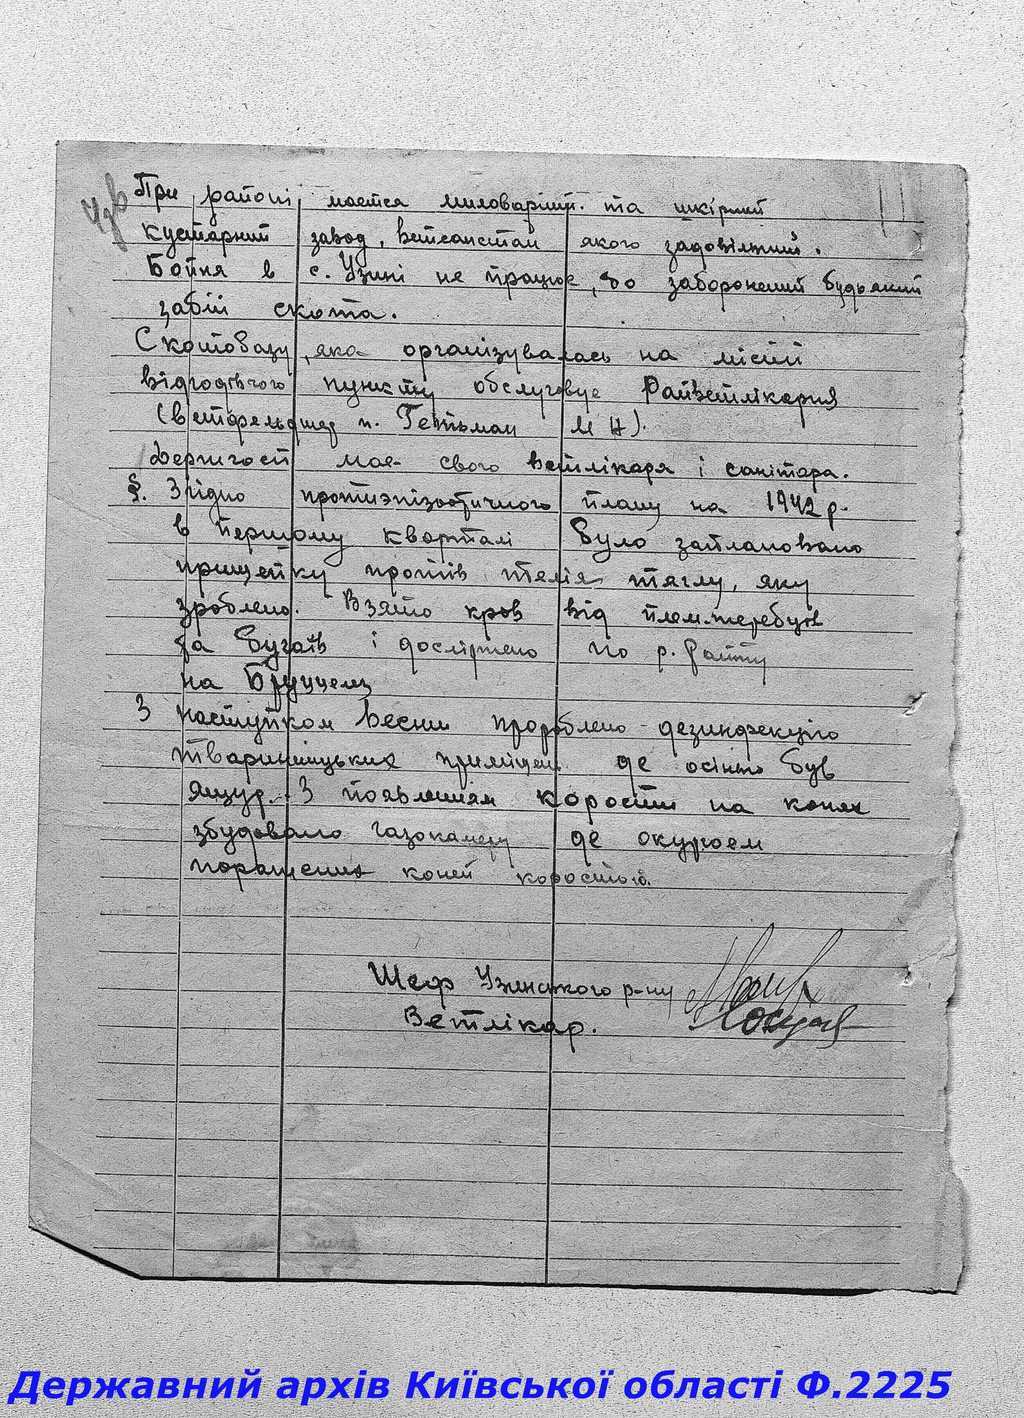 При районі мается миловарний та шкірний
кустарний завод, ветсанстан якого задовільний.
Бойня в с. Узині не працює, бо заборонений будьякий
забій скота.
Скотобазу, яка організувалась на місті
відгодівчого пункту обслуговує Райветлікарня
(ветфельдшер п. Гетьман М Н).
Держгосп має свого ветлікаря і санітара.
§. Згідно протиэпізоотичного плану на 1942 р.
в першому кварталі було заплановано
прищепку протів тяглу, яку
зроблено. Взято кров від плем.жеребців
та бугаїв і досліджено по р. Району
на Бруццелз
З наступком весни пророблено дезинфекцію
тваринницьких приміщен де осінню був
ящур. З появленням корости на конях
збудовано газокамеру де окурюєм
поражених коней коростою.
Шеф Узинського р-ну
Ветлікар.
Державний архів Київської області Ф.2225